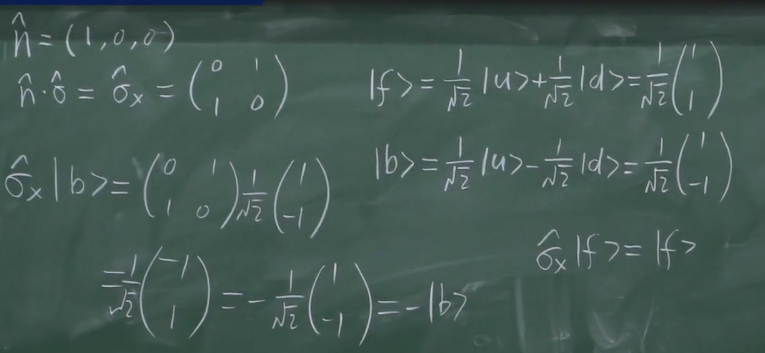 n̂ = (1, 0, 0)
n̂·σ̂ = σ̂ₓ = (0 1; 1 0)
|f> = 1/√2 |u> + 1/√2 |d> = 1/√2 (1; 1)
σ̂ₓ|b> = (0 1; 1 0) 1/√2 (1; -1)
= 1/√2 (-1; 1) = - 1/√2 (1; -1) = -|b>
|b> = 1/√2 |u> - 1/√2 |d> = 1/√2 (1; -1)
σ̂ₓ|f> = |f>